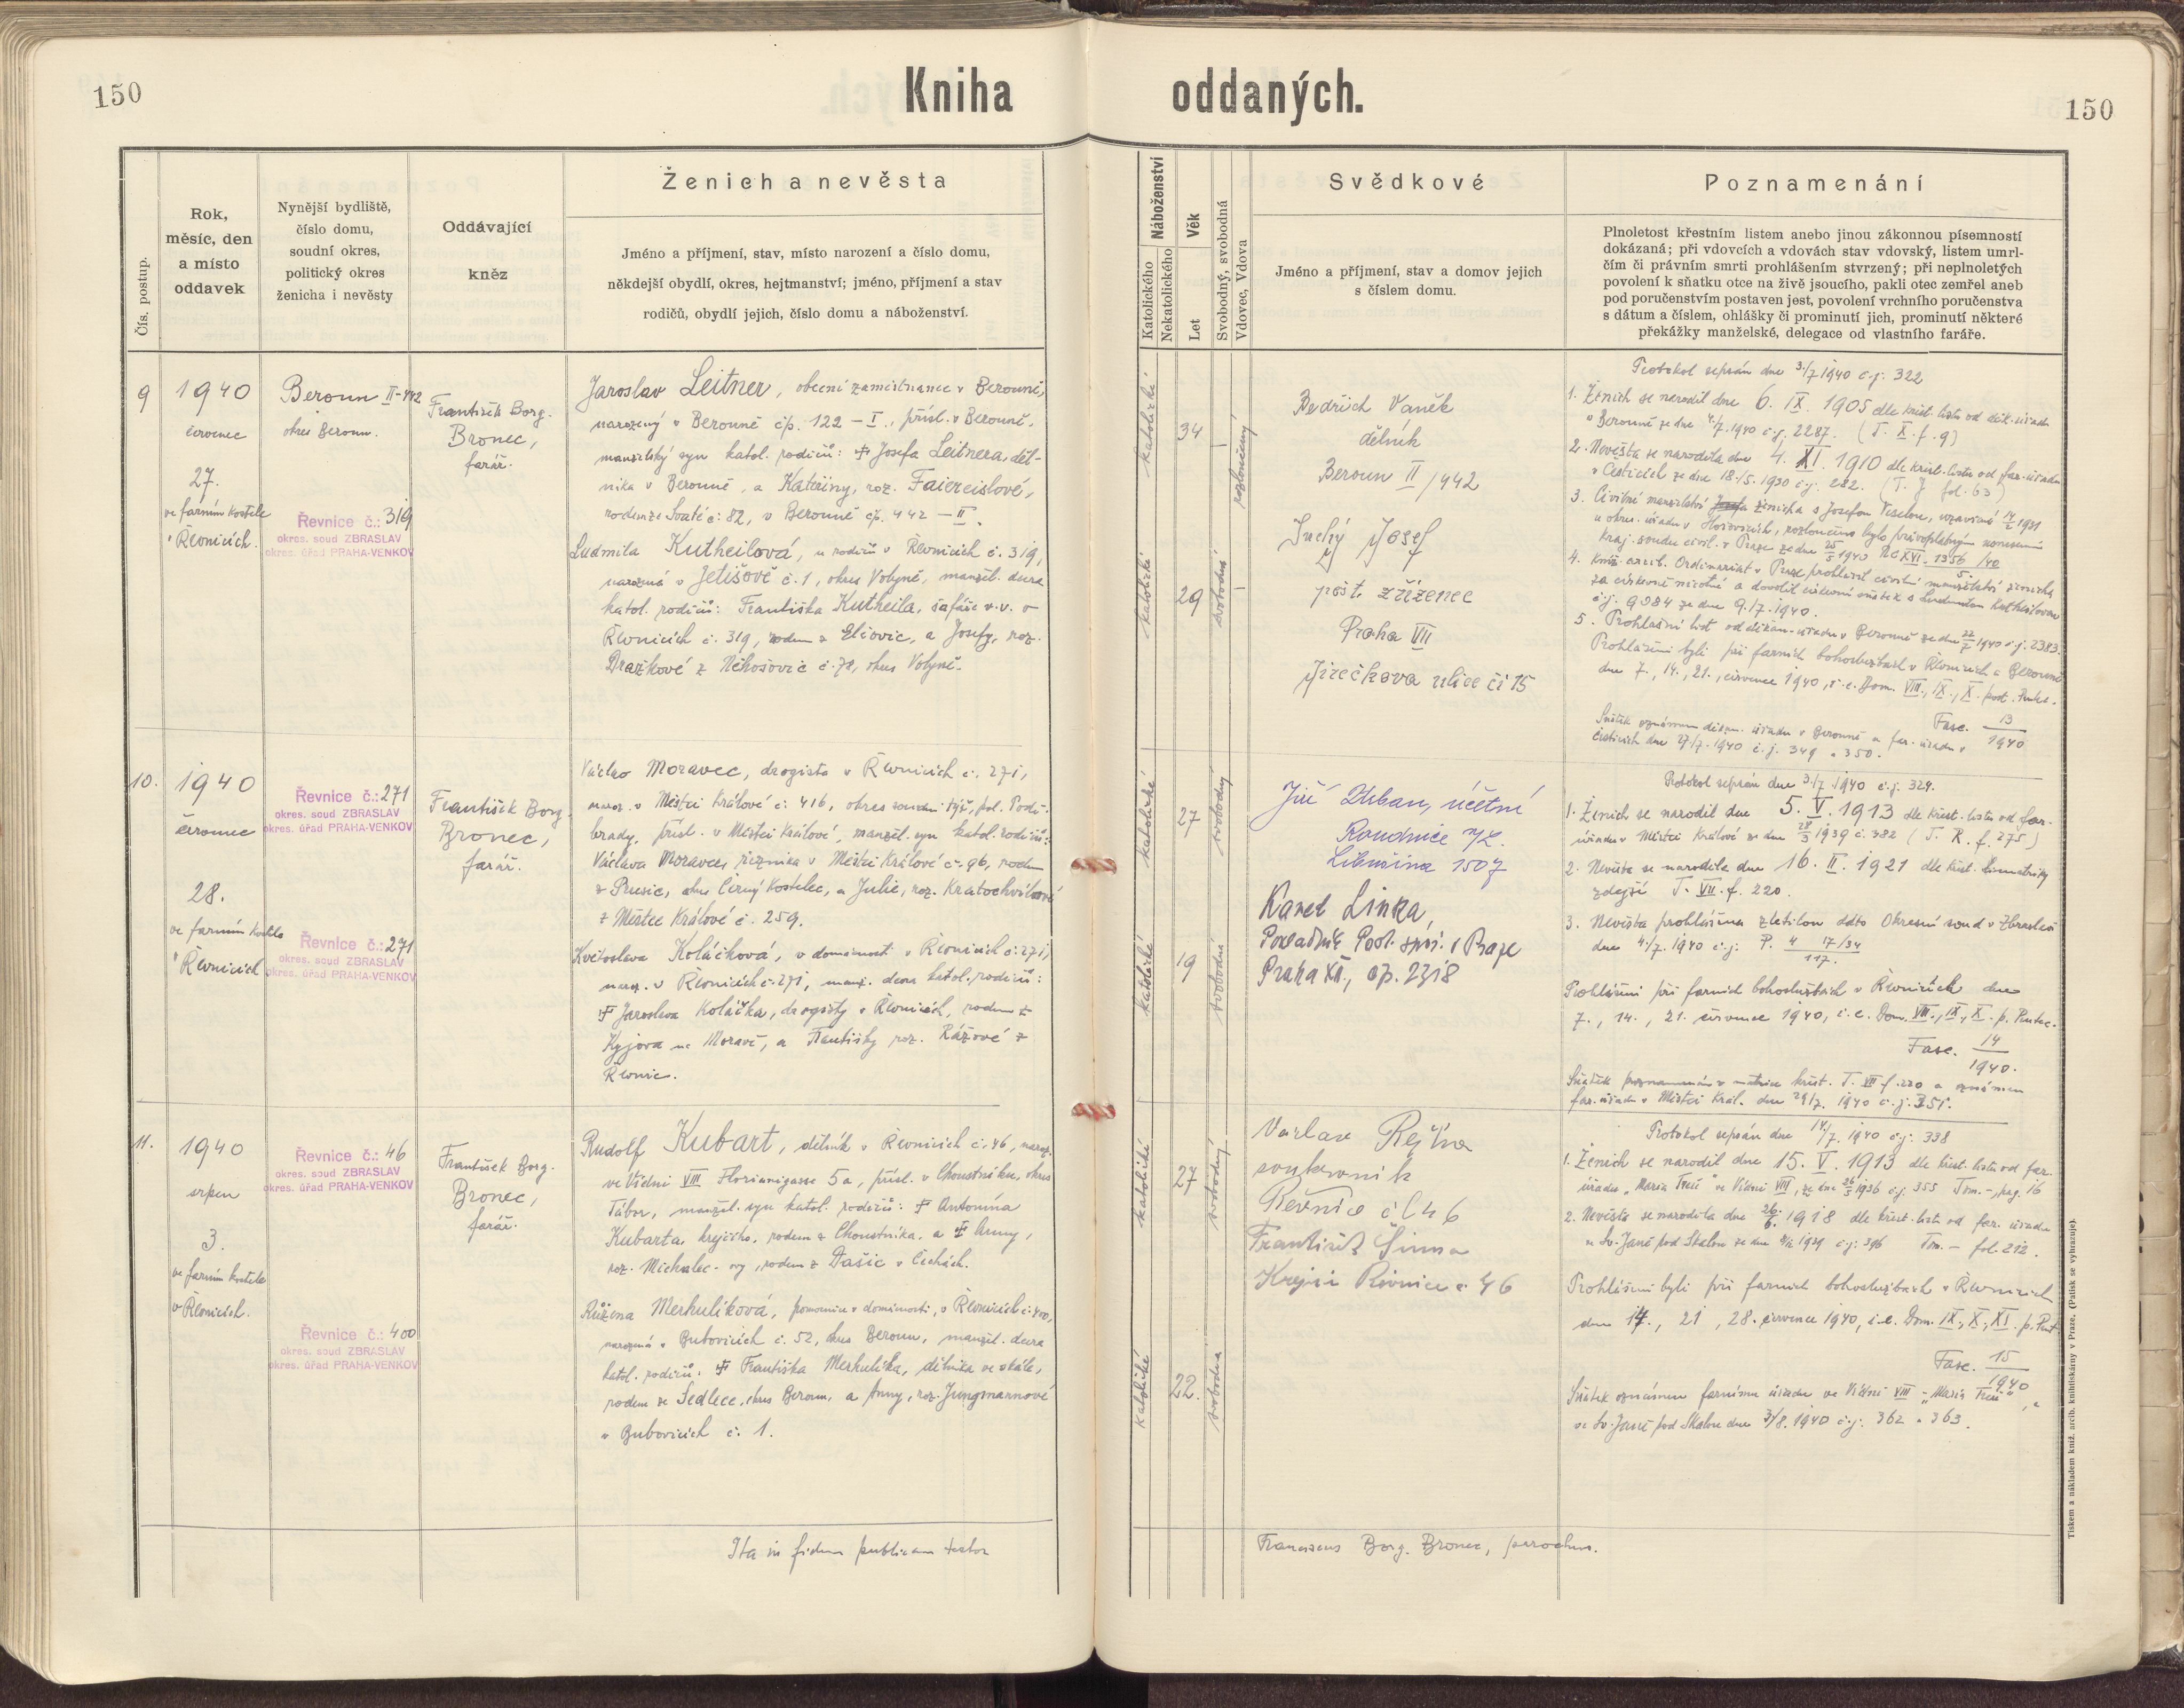 150
Kniha oddaných.
150
Čís. postup.
Rok,
měsíc, den
a místo
oddavek
Nynější bydliště,
číslo domu,
soudní okres,
politický okres
ženicha i nevěsty
Oddávající
kněz
Ženich a nevěsta
Jméno a příjmení, stav, místo narození a číslo domu,
někdejší obydlí, okres, hejtmanství; jméno, příjmení a stav
rodičů, obydlí jejich, číslo domu a náboženství.
Náboženství
Katolického
Nekatolického
Věk
Let
Svobodný, svobodná
Vdovec, Vdova
Svědkové
Jméno a příjmení, stav a domov jejich
s číslem domu.
Poznamenání
Plnoletost křestním listem anebo jinou zákonnou písemností
dokázaná; při vdovcích a vdovách stav vdovský, listem umrl-
čím či právním smrti prohlášením stvrzený; při neplnoletých
povolení k sňatku otce na živě jsoucího, pakli otec zemřel aneb
pod poručenstvím postaven jest, povolení vrchního poručenstva
s dátum a číslem, ohlášky či prominutí jich, prominutí některé
překážky manželské, delegace od vlastního faráře.
9
1940
červenec
27.
ve farním kostele
v Řevnicích.
Beroun II-442
okres Beroun.
Řevnice č.: 319
okres. soud ZBRASLAV
okres. úřad PRAHA-VENKOV
František Borg.
Bronec,
farář.
Jaroslav Leitner, obecní zaměstnanec v Berouně,
narozený v Berouně čp. 122 – I., přísl. v Berouně,
manželský syn katol. rodičů: † Josefa Leitnera, děl-
níka v Berouně, a Kateřiny, roz. Faiereislové,
rodem ze Svaté č. 82, v Berouně čp. 442 – II.
Ludmila Kutheilová, u rodičů v Řevnicích č. 319,
narozená v Jetišově č. 1, okres Volyně, manžel. dcera
katol. rodičů: Františka Kutheila, šafáře v.v. v
Řevnicích č. 319, rodem z Elčovic, a Josefy, roz.
Dražkové z Něhošovic č. 78, okres Volyně.
katolické
34
rozloučený
katolické
29
svobodná
Bedřich Vaněk
dělník
Beroun II /442
Suchý Josef
pošt. zřízenec
Praha VII
Jirečkova ulice čí 15
Protokol sepsán dne 3./7. 1940 č.j. 322
1. Ženich se narodil dne 6. IX. 1905 dle křest. listu od děk. úřadu
v Berouně ze dne 4./7. 1940 č.j. 2287. (T. X. f. 9)
2. Nevěsta se narodila dne 4. XI. 1910 dle křest. listu od far. úřadu
v Čestících ze dne 18./5. 1930 č.j. 282. (T. J fol. 63)
3. Civilní manželství ženicha s Josefou Veselou, uzavřené 1931
u okres. úřadu v Hořovicích, rozloučeno bylo právoplatným usnesením
kraj. soudu civil. v Praze ze dne 1940 XVI. 1356/40
4. Kníž. arcib. Ordinariát v Praze prohlásil civilní manželství ženicha
za církevně nicotné a dovolil církevní sňatek s Ludmilou Kutheilovou
č.j. 9984 ze dne 9./7. 1940.
5. Prohlašní list od děkan. úřadu v Berouně ze dne 22/7 1940 č.j. 2383.
Prohlášeni byli při farních bohoslužbách v Řevnicích a Berouně
dne 7., 14., 21., července 1940, t.c. Dom. VIII., IX., X. post. Pentec.
Fasc. 13/1940
Sňatek oznámen děkan. úřadu v Berouně a far. úřadu v
Čestících dne 27./7. 1940 č.j. 349 a 350.
10.
1940
červenec
28.
ve farním kostele
v Řevnicích
Řevnice č.: 271
okres. soud ZBRASLAV
okres. úřad PRAHA-VENKOV
Řevnice č.: 271
okres. soud ZBRASLAV
okres. úřad PRAHA-VENKOV
František Borg.
Bronec,
farář.
Václav Moravec, drogista v Řevnicích č. 271,
naroz. v Městci Králové č. 416, okres soudní týž, pol. Podě-
brady, přísl. v Městci Králové, manžel. syn katol. rodičů:
Václava Moravce, řezníka v Městci Králové č. 96, rodem
z Prusic, okres Černý Kostelec, a Julie, roz. Kratochvílové
z Městce Králové č. 259.
Květoslava Koláčková, v domácnosti v Řevnicích č. 271,
naroz. v Řevnicích č. 271, manž. dcera katol. rodičů:
† Jaroslava Koláčka, drogisty v Řevnicích, rodem z
Kyjova na Moravě, a Františky roz. Rážové z
Řevnic.
katolické
27
svobodný
katolické
19
svobodná
Jiří Urban, účetní
Roudnice n/L.
Libušina 1507
Karel Linka,
Pokladník Praze
Praha XII., čp. 2318
Protokol sepsán dne 3./7. 1940 č.j. 324.
1. Ženich se narodil dne 5. V. 1913 dle křest. listu od far.
úřadu v Městci Králové ze dne 28/3 1939 č. 482 (T. R. f. 275)
2. Nevěsta se narodila dne 16. II. 1921 dle křest. matriky
zdejší T. VII. f. 220.
3. Nevěsta prohlášena zletilou ddto Okresní soud v Zbraslavi
dne 4./7. 1940 č.j. P. 4 17/34
117.
Prohlášeni při farních bohoslužbách v Řevnicích dne
7., 14., 21. července 1940, t.c. Dom. VIII., IX., X. p. Pentec.
Fasc. 14/1940.
Sňatek poznamenán v matrice křest. T. VII f. 220 a oznámen
far. úřadu v Městci Král. dne 29/7. 1940 č.j. 351.
11.
1940
srpen
3.
ve farním kostele
v Řevnicích.
Řevnice č.: 46
okres. soud ZBRASLAV
okres. úřad PRAHA-VENKOV
Řevnice č.: 400
okres. soud ZBRASLAV
okres. úřad PRAHA-VENKOV
František Borg.
Bronec,
farář.
Rudolf Kubart, dělník v Řevnicích č. 46, naroz.
ve Vídni VIII Florianigasse 5a, přísl. v Choustníku, okres
Tábor, manžel. syn katol. rodičů: † Antonína
Kubarta, krejčího, rodem z Choustníka, a † Anny,
roz. Michalec-ovy, rodem z Dašic v Čechách.
Růžena Merhulíková, pomocnice v domácnosti, v Řevnicích č. 400,
narozená v Bubovicích č. 52, okres Beroun, manžel. dcera
katol. rodičů: † Františka Merhulíka, dělníka ve skále,
rodem ze Sedlece, okres Beroun, a Anny, roz. Jungmannové
v Bubovicích č. 1.
katolické
27
svobodný
katolické
22.
svobodná
Václav Rejčha
soukromník
Řevnice čí 46
František Šíma
Krejčí Řevnice č. 46
Protokol sepsán dne 14/7. 1940 č.j. 338
1. Ženich se narodil dne 15. V. 1913 dle křest. listu od far.
úřadu „Maria Treu" ve Vídni VIII, ze dne 1936 č.j. 355 Tom. –, pag. 16
2. Nevěsta se narodila dne 26. 1918 dle křest. listu od far. úřadu
u Sv. Jana pod Skalou ze dne 1939 č.j. 396 Tom. – fol. 212.
Prohlášeni byli při farních bohoslužbách v Řevnicích
dne 14., 21, 28. července 1940, t.c. Dom. IX., X., XI. p. Pent.
Fasc. 15/1940
Sňatek oznámen farnímu úřadu ve Vídni VIII „Maria Treu", a
ve Sv. Janě pod Skalou dne 3/8. 1940 č.j. 362 a 363.
Ita in fidem publicam testor
Franciscus Borg. Bronec, parochus.
Tiskem a nákladem kníž. arcib. knihtiskárny v Praze. (Patisk se vyhrazuje).